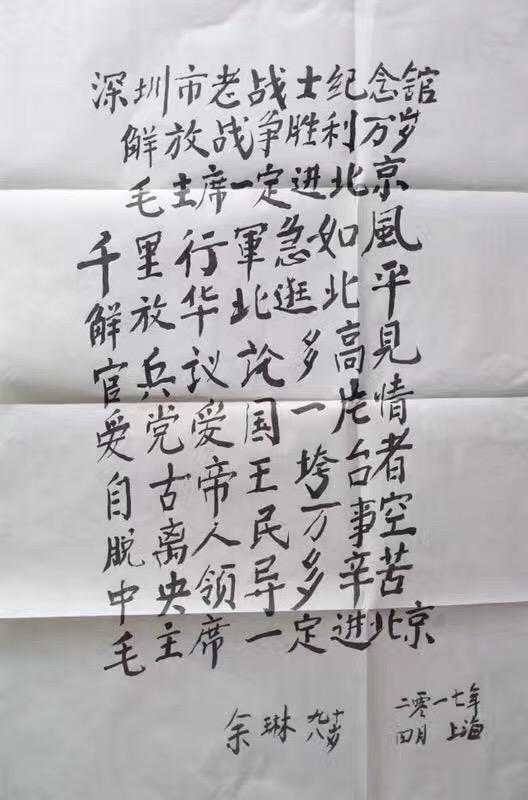 深圳市老战士纪念馆
解放战争胜利万岁
毛主席一定进北京
千里行軍急如風
解放华北逛北平
官兵议论多高見
爱党爱国一片情
自古帝王垮台者
脱离人民万事空
中央领导多辛苦
毛主席一定进北京
余琳 九十八岁
二零一七年
四月 上海